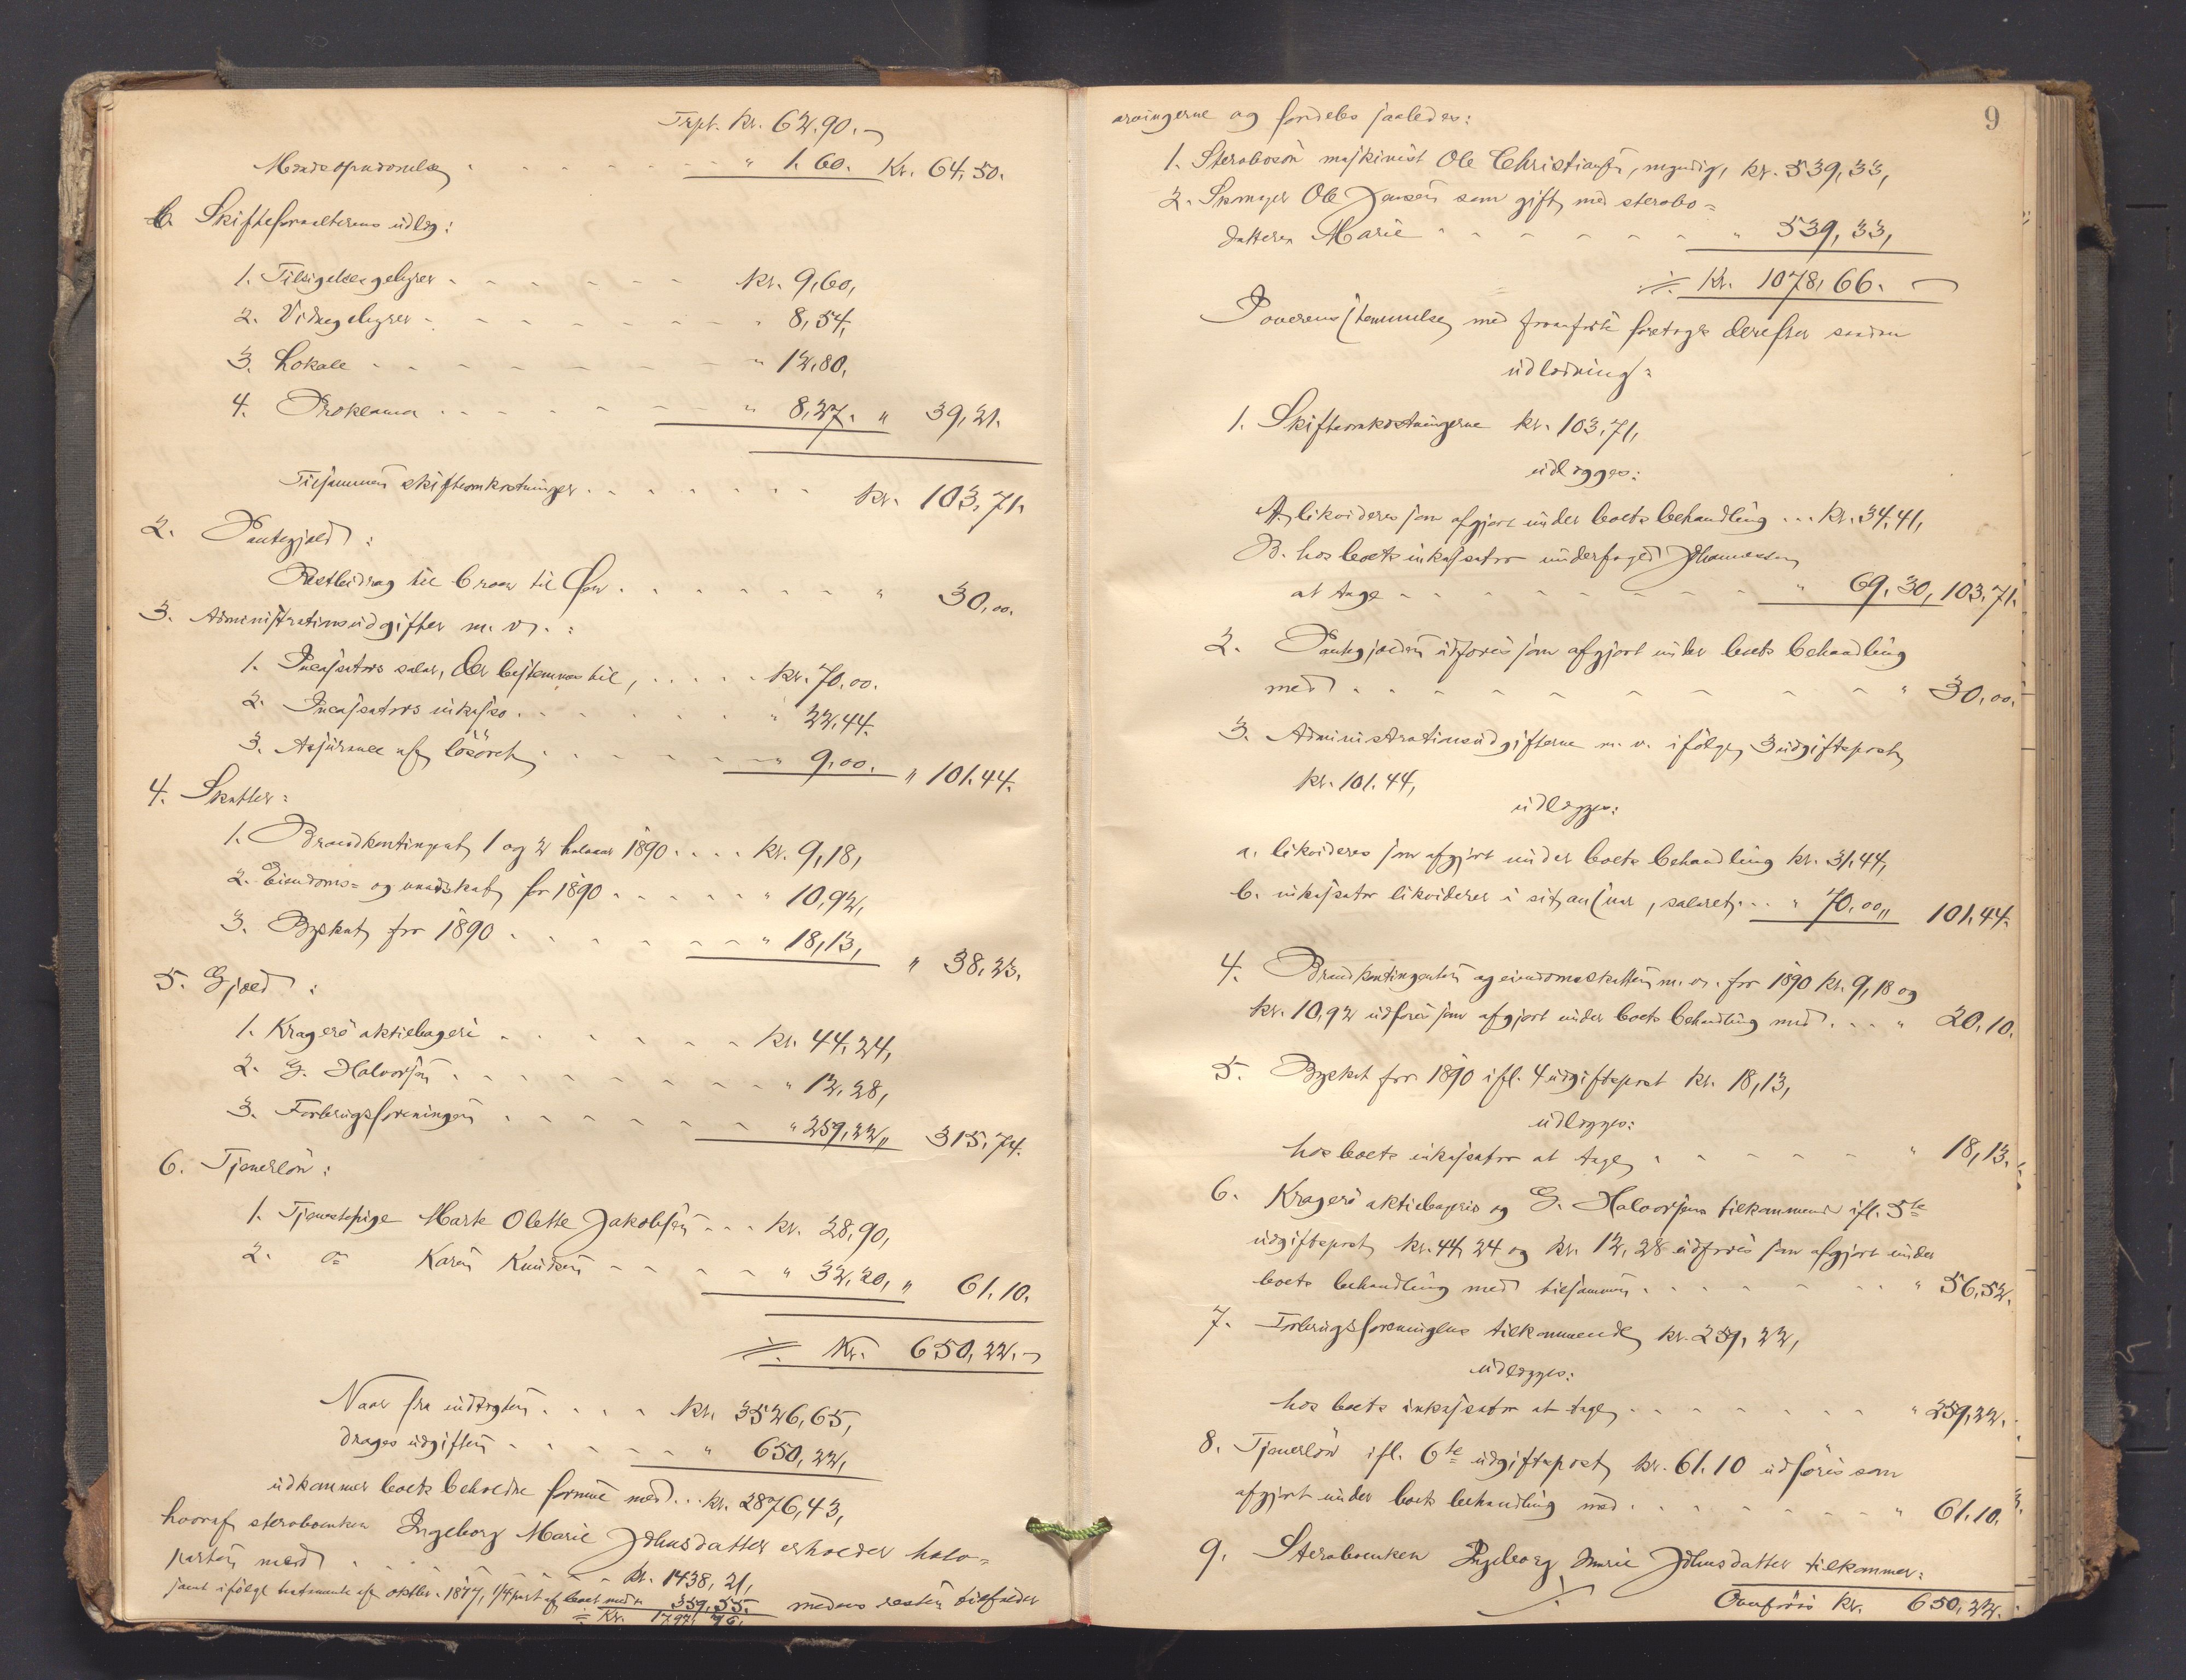 Trpt. Kr. 62.90.
" 1.60. Kr. 64.50.
b. Skifteforvalterens udlæg:
1. Tilsigelsesgebyrer . . . . Kr. 9,60,
2. Vidnegebyrer . . . . " 8,54,
3. Lokale . . . . " 12,80,
4. Proklama . . . . " 8,27. " 39,21.
Tilsammen skifteomkostninger . . . . Kr. 103,71.
2. Pantegjæld:
Restbidrag til . . . . " 30,00.
3. Administrationsudgifter m. v.:
1. Incassators salær, der bestemmes til, . . . . Kr. 70,00.
2. Incassators inkasso . . . . " 22,44.
3. Assurance af løsøret . . . . " 9,00. " 101.44.
4. Skatter:
1. Brandkontingent 1 og 2 halvaar 1890 . . . . Kr. 9,18,
2. Eiendoms- og skat for 1890 . . . . " 10,92,
3. Byskat for 1890 . . . . " 18,13, " 38,23.
5. Gjæld:
1. Kragerø aktiebageri . . . . Kr. 44,24,
2. G. Halvorsen . . . . " 12,28,
3. Forbrugsforeningen . . . . " 259,22,, 315,74.
6. Tjenerløn:
1. Tjenestepige Marte Olette Jakobsen . . . Kr. 28,90,
2. do Karen Knudsen . . . . " 32,20, " 61.10.
Kr. 650,22.
Naar fra indtægten . . . . Kr. 3526,65,
drages udgiften . . . . " 650,22,
udkommer boets beholdne formue med . . . Kr. 2876,43,
hvoraf stervboenken Ingeborg Marie Johnsdatter erholder halv-
parten med . . . . Kr. 1438,21,
samt ifølge testamente af oktbr. 1877, 1/4 part af boet med " 359,55. medens resten tilfalder
= Kr. 1797,76.
9
arvingerne og fordeles saaledes:
1. Stervbosøn maskinist Ole Christiansen, myndig, Kr. 539,33,
2. Ole Jensen som gift med stervbo-
datteren Marie . . . . " 539,33,
Kr. 1078,66.
I overensstemmelse med foranførte foretages derefter saadan
udlodning:
1. Skifteomkostningerne Kr. 103,71,
udlægges:
A, likvideres som afgjort under boets behandling . . . Kr. 34,41,
B. hos boets inkassator underfoged Johannessen
at tage . . . . " 69,30, 103,71.
2. Pantegjælden udføres som afgjort under boets behandling
med . . . . " 30,00.
3. Administrationsudgifterne m. v. ifølge 3 udgiftspost
Kr. 101.44,
udlægges:
a. likvideres som afgjort under boets behandling Kr. 31,44,
b. inkassator likviderer i sit ansvar, salæret . . . " 70,00,, 101,44.
4. Brandkontingenten og eiendomsskatten m. v. for 1890 Kr. 9,18 og
Kr. 10,92 udføres som afgjort under boets behandling med . . . " 20,10.
5. Byskat for 1890 ifl. 4 udgiftspost Kr. 18,13,
udlægges:
hos boets inkassator at tage . . . . " 18,13.
6. Kragerø aktiebageris og G. Halvorsens tilkommende ifl. 5te
udgiftspost Kr. 44,24 og Kr. 12,28 udføres som afgjort under
boets behandling med tilsammen . . . . " 56,52.
7. Forbrugsforeningens tilkommende Kr. 259,22,
udlægges:
hos boets inkassator at tage . . . . " 259,22.
8. Tjenerløn ifl. 6te udgiftspost Kr. 61.10 udføres som
afgjort under boets behandling med . . . . " 61.10.
9. Stervboenken Ingeborg Marie Johnsdatter tilkommer:
Overføres Kr. 650,22.